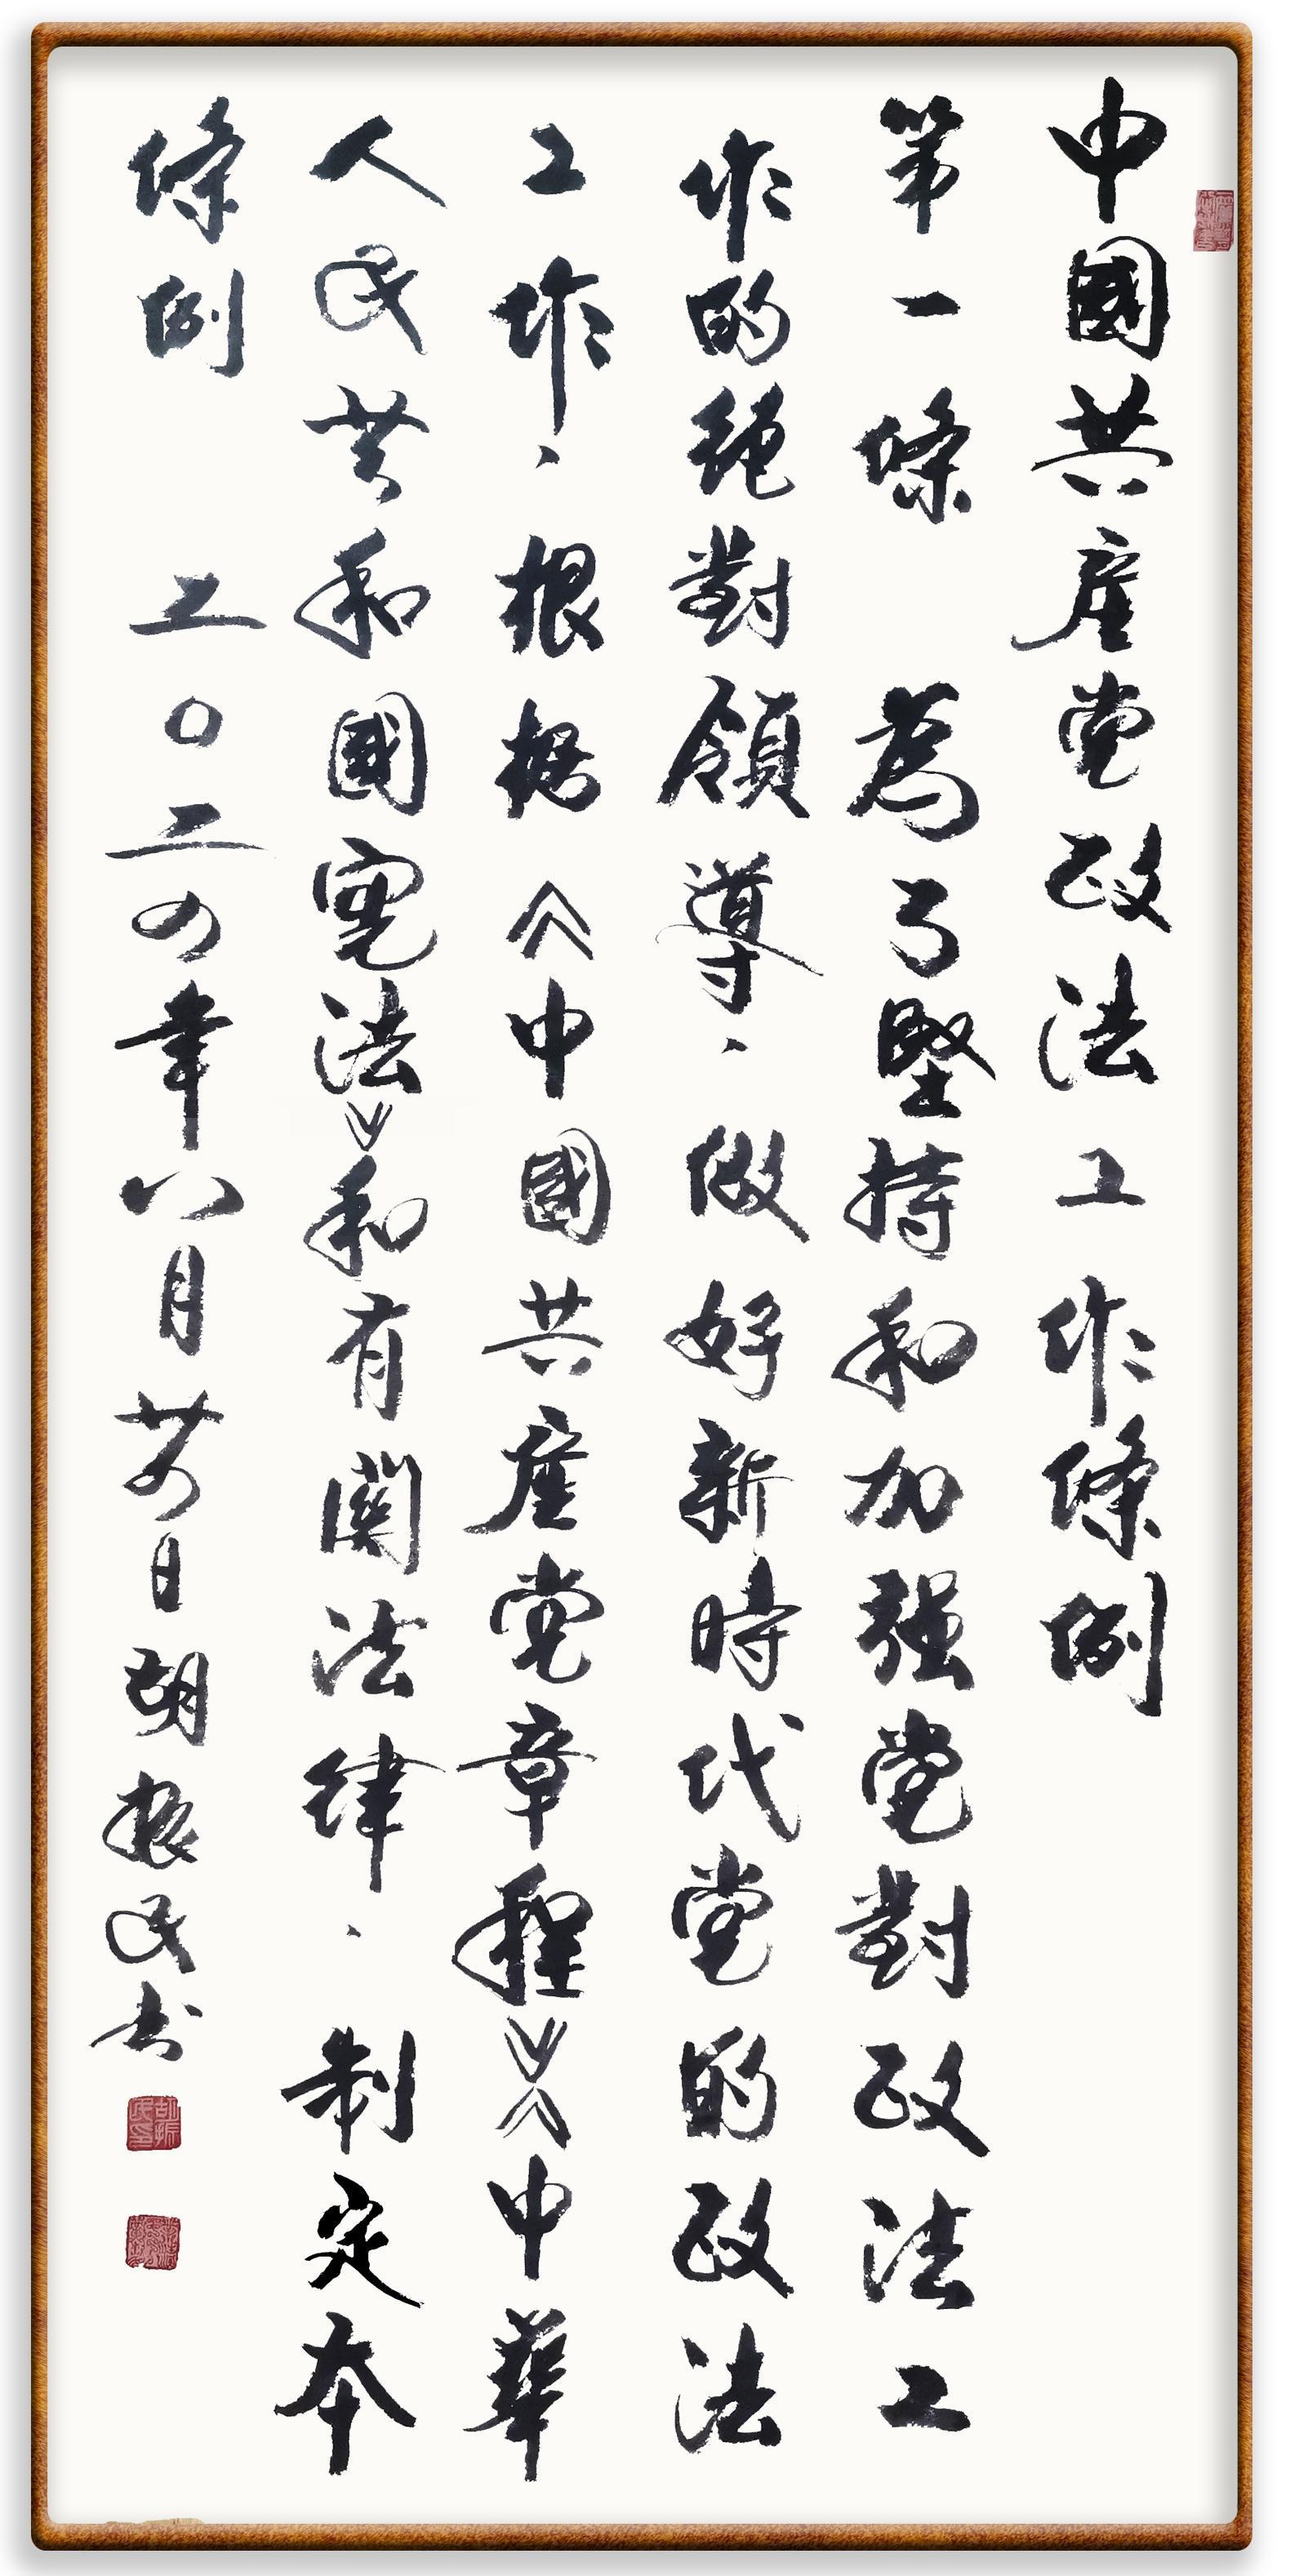 中國共產党政法工作條例
第一條 為了堅持和加强党對政法工
作的絕對領導、做好新時代党的政法
工作、根據《中國共產党章程》《中華
人民共和國憲法》和有關法律、制定本
條例 二〇二四年八月廿四日胡振民书